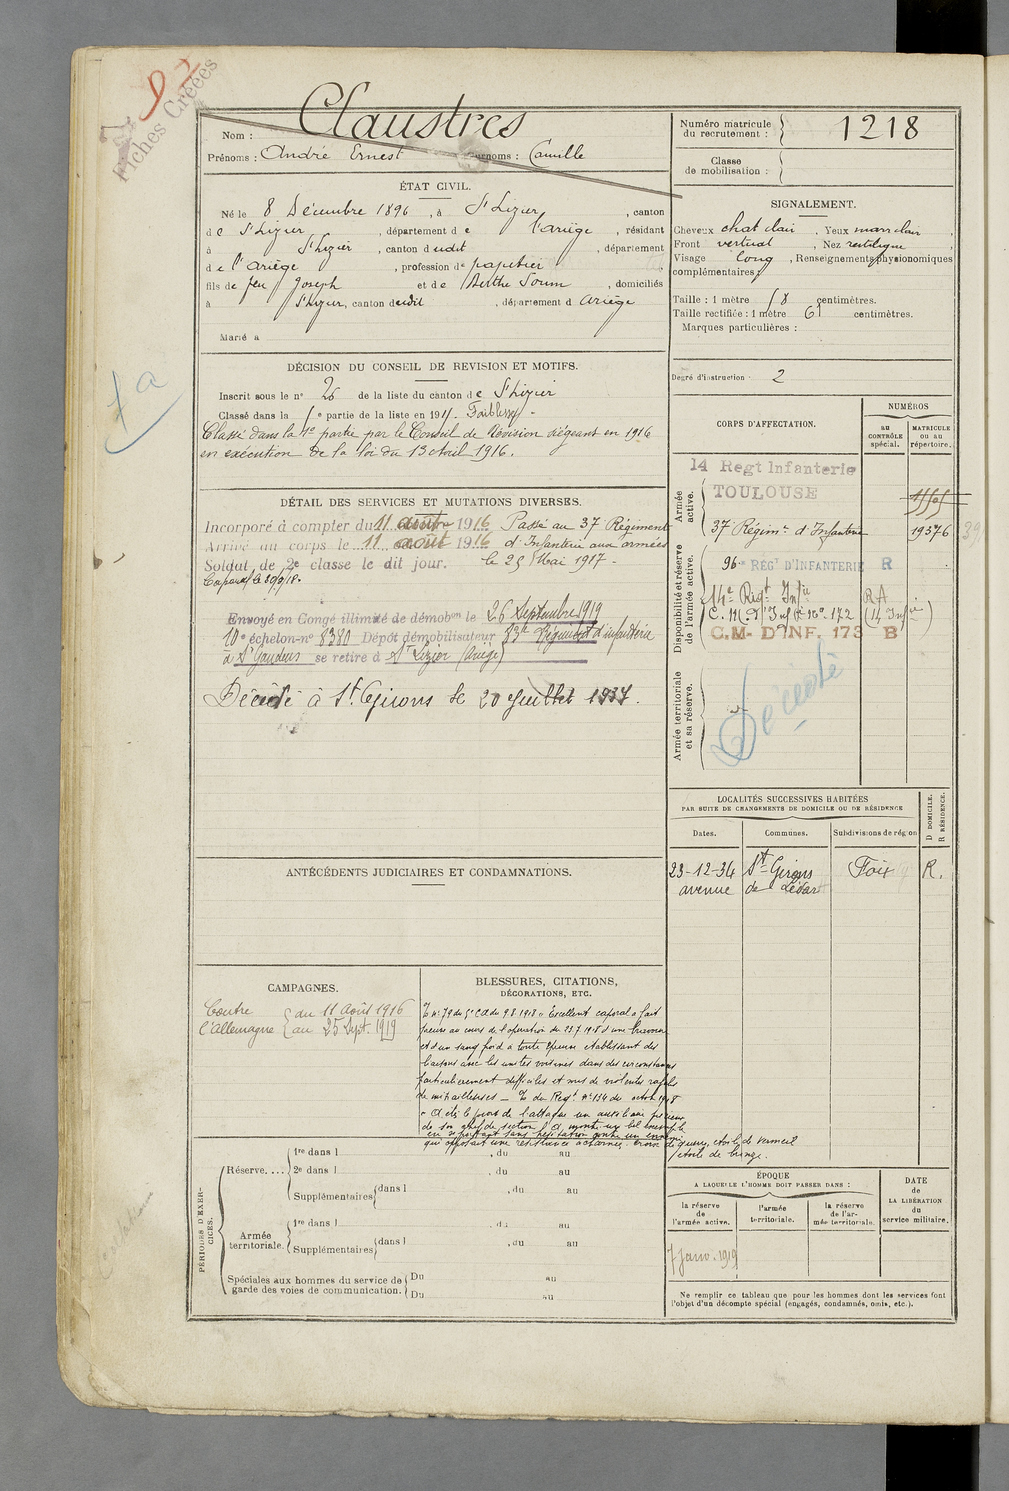 Fiches Créées
Nom : Claustres
Prénoms : André Ernest Surnoms : Camille
Numéro matricule du recrutement : 1218
Classe de mobilisation :
ÉTAT CIVIL.
Né le 8 Décembre 1896, à St Lizier, canton
de St Lizier, département de l'ariège, résidant
à St Lizier, canton dudit, département
de l'Ariège, profession de papetier
fils de feu Joseph et de Berthe Soum, domiciliés
à St Lizier, canton dudit, département d Ariège
Marié à
SIGNALEMENT.
Cheveux chat clair, Yeux marr clair,
Front vertical, Nez rectiligne,
Visage long, Renseignements physionomiques
complémentaires
Taille : 1 mètre 58 centimètres.
Taille rectifiée : 1 mètre 61 centimètres.
Marques particulières :
Degré d'instruction : 2
DÉCISION DU CONSEIL DE REVISION ET MOTIFS.
Inscrit sous le n° 26 de la liste du canton de St Lizier
Classé dans la 5e partie de la liste en 1915. Faiblesse.
Classé dans la 1e partie par le Conseil de Révision siégeant en 1916
en exécution de la loi du 13 Avril 1916.
DÉTAIL DES SERVICES ET MUTATIONS DIVERSES.
Incorporé à compter du 11 août 1916 Passé au 37 Régiment
Arrivé au corps le 11 août 1916 d'Infanterie aux armées
Soldat de 2e classe le dit jour. le 25 Mai 1917.
Caporal le
Envoyé en Congé illimité de démobon le 26 Septembre 1919
10e échelon-n° 8380 Dépôt démobilisateur 83e Régiment d'infanterie
à St Gaudens se retire à St Lizier (Ariège)
Décédé à St Girons le 20 Juillet 1937.
CORPS D'AFFECTATION.
NUMÉROS
au CONTRÔLE spécial.
MATRICULE ou au répertoire.
Armée active.
14 Regt Infanterie
TOULOUSE
37 Régimt d'Infanterie 19376
Disponibilité et réserve de l'armée active.
96e RÉGt D'INFANTERIE R
14e Régt Infie RA
C. M. d'Inf n° 172 (14 Infie)
C.M. D'INF. 173 B
Armée territoriale et sa réserve.
Décédé
LOCALITÉS SUCCESSIVES HABITÉES
PAR SUITE DE CHANGEMENTS DE DOMICILE OU DE RÉSIDENCE
Dates. Communes. Subdivisions de région
D DOMICILE. R RÉSIDENCE.
23-12-34 St Girons Foix R.
avenue de
ANTÉCÉDENTS JUDICIAIRES ET CONDAMNATIONS.
CAMPAGNES.
Contre du 11 Août 1916
l'Allemagne au 25 Sept. 1919
BLESSURES, CITATIONS,
DÉCORATIONS, ETC.
du 9.8.1918 « Excellent caporal a fait
preuve au cours de l'opération du 23.7.1918 d'une bravoure
et d'un sang froid à toute épreuve établissant des
liaisons avec les unités voisines dans des circonstances
particulièrement difficiles et mis de violentes rafales
de mitrailleuses — du Régt n° 134 du
de son chef de section
qui opposait une résistance acharnée. Croix de guerre, étoile de vermeil
étoile de bronze.
PÉRIODES D'EXERCICES.
Réserve....
1re dans l , du au
2e dans l , du au
Supplémentaires dans l , du au
Armée territoriale.
1re dans l , du au
Supplémentaires dans l , du au
Spéciales aux hommes du service de garde des voies de communication. Du au
Du au
ÉPOQUE
A LAQUELLE L'HOMME DOIT PASSER DANS :
la réserve de l'armée active.
l'armée territoriale.
la réserve de l'armée territoriale.
DATE de LA LIBÉRATION du service militaire.
7 Janv. 1919
Ne remplir ce tableau que pour les hommes dont les services font
l'objet d'un décompte spécial (engagés, condamnés, omis, etc.).